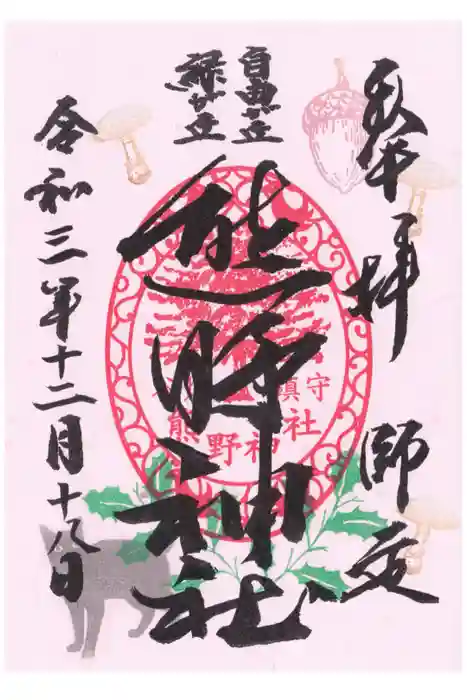 奉拝
師走
自由が丘
緑が丘
熊野神社
鎮守
熊野神社
令和三年十二月十八日